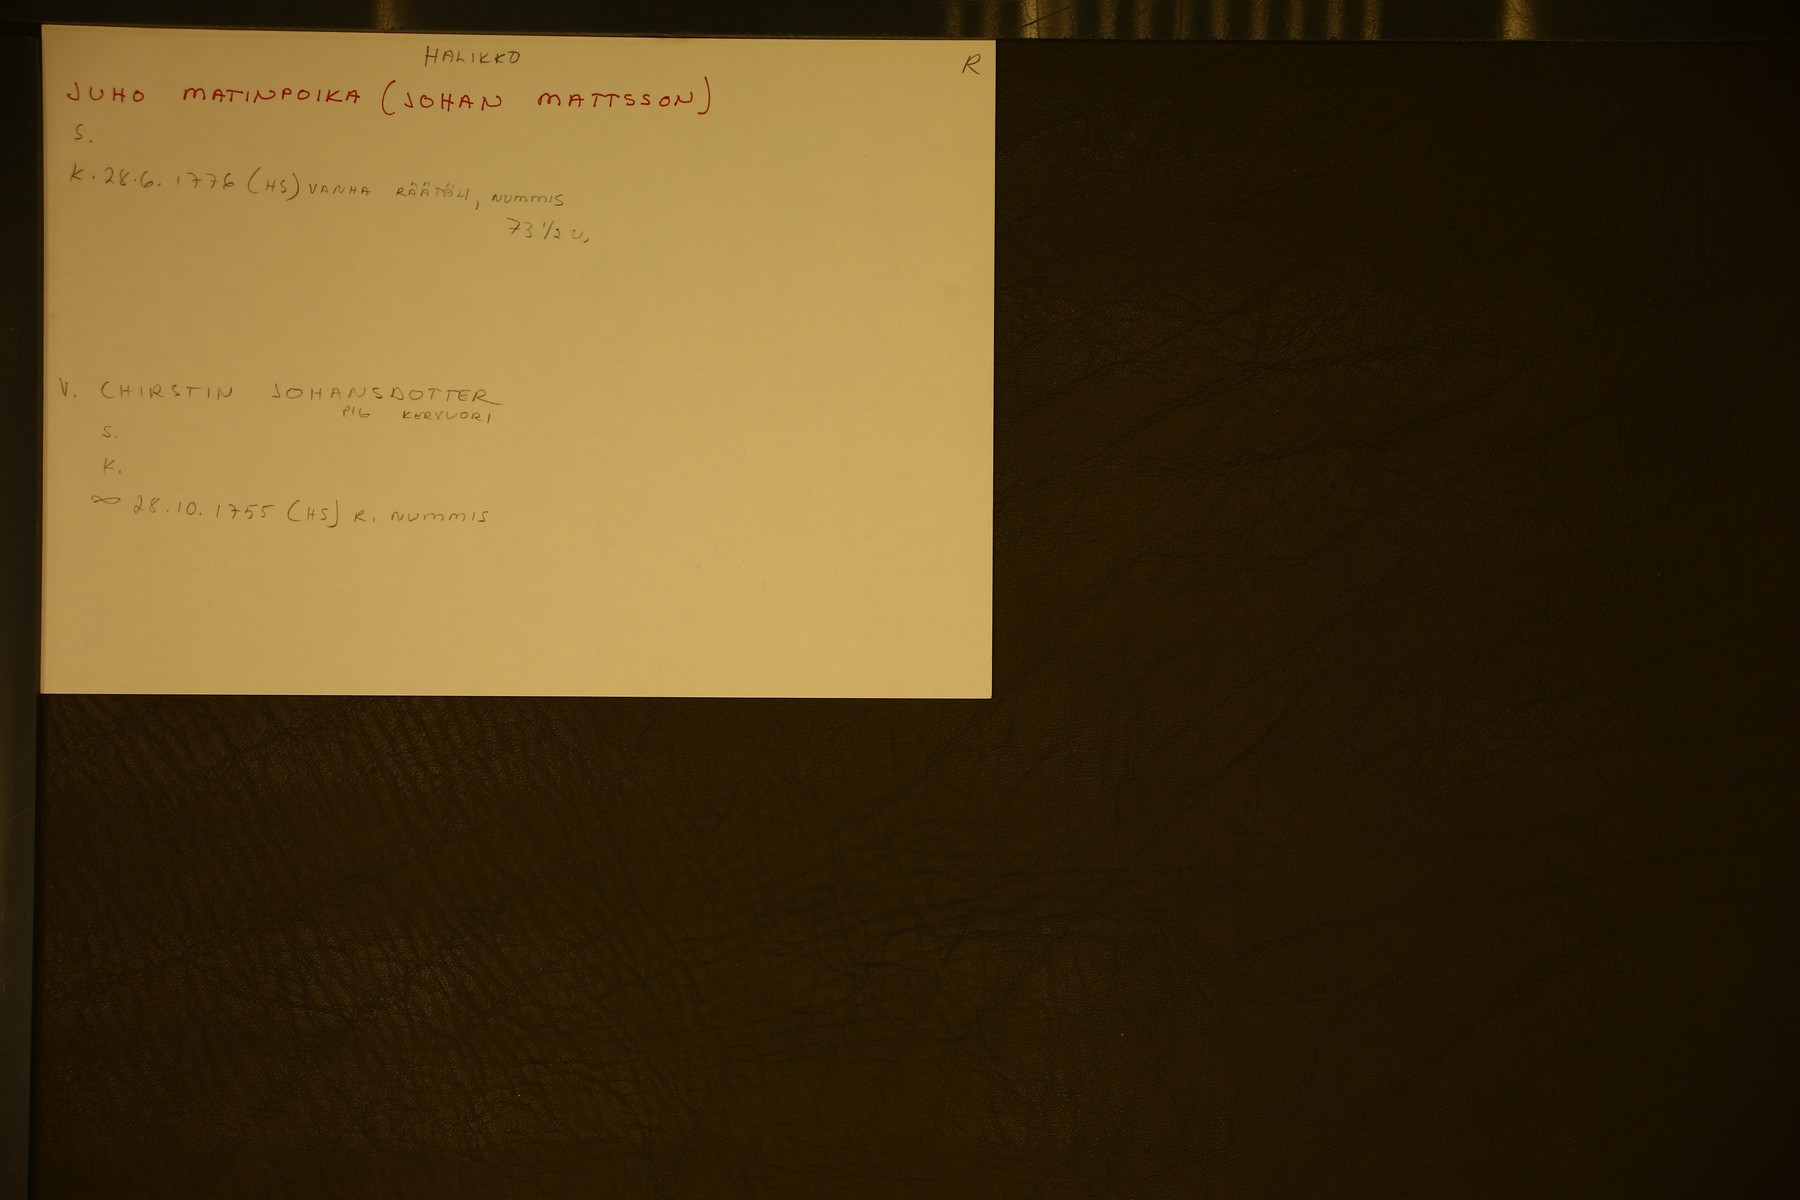 HALIKKO
R
JUHO MATINPOIKA (JOHAN MATTSSON)
S.
K. 28.6. 1776 (HS) VANHA RÄÄTÄLI, NUMMIS
73 1/2 V,
V. CHIRSTIN JOHANSDOTTER
PIG KERVUORI
S.
K.
∞ 28.10. 1755 (HS) R. NUMMIS